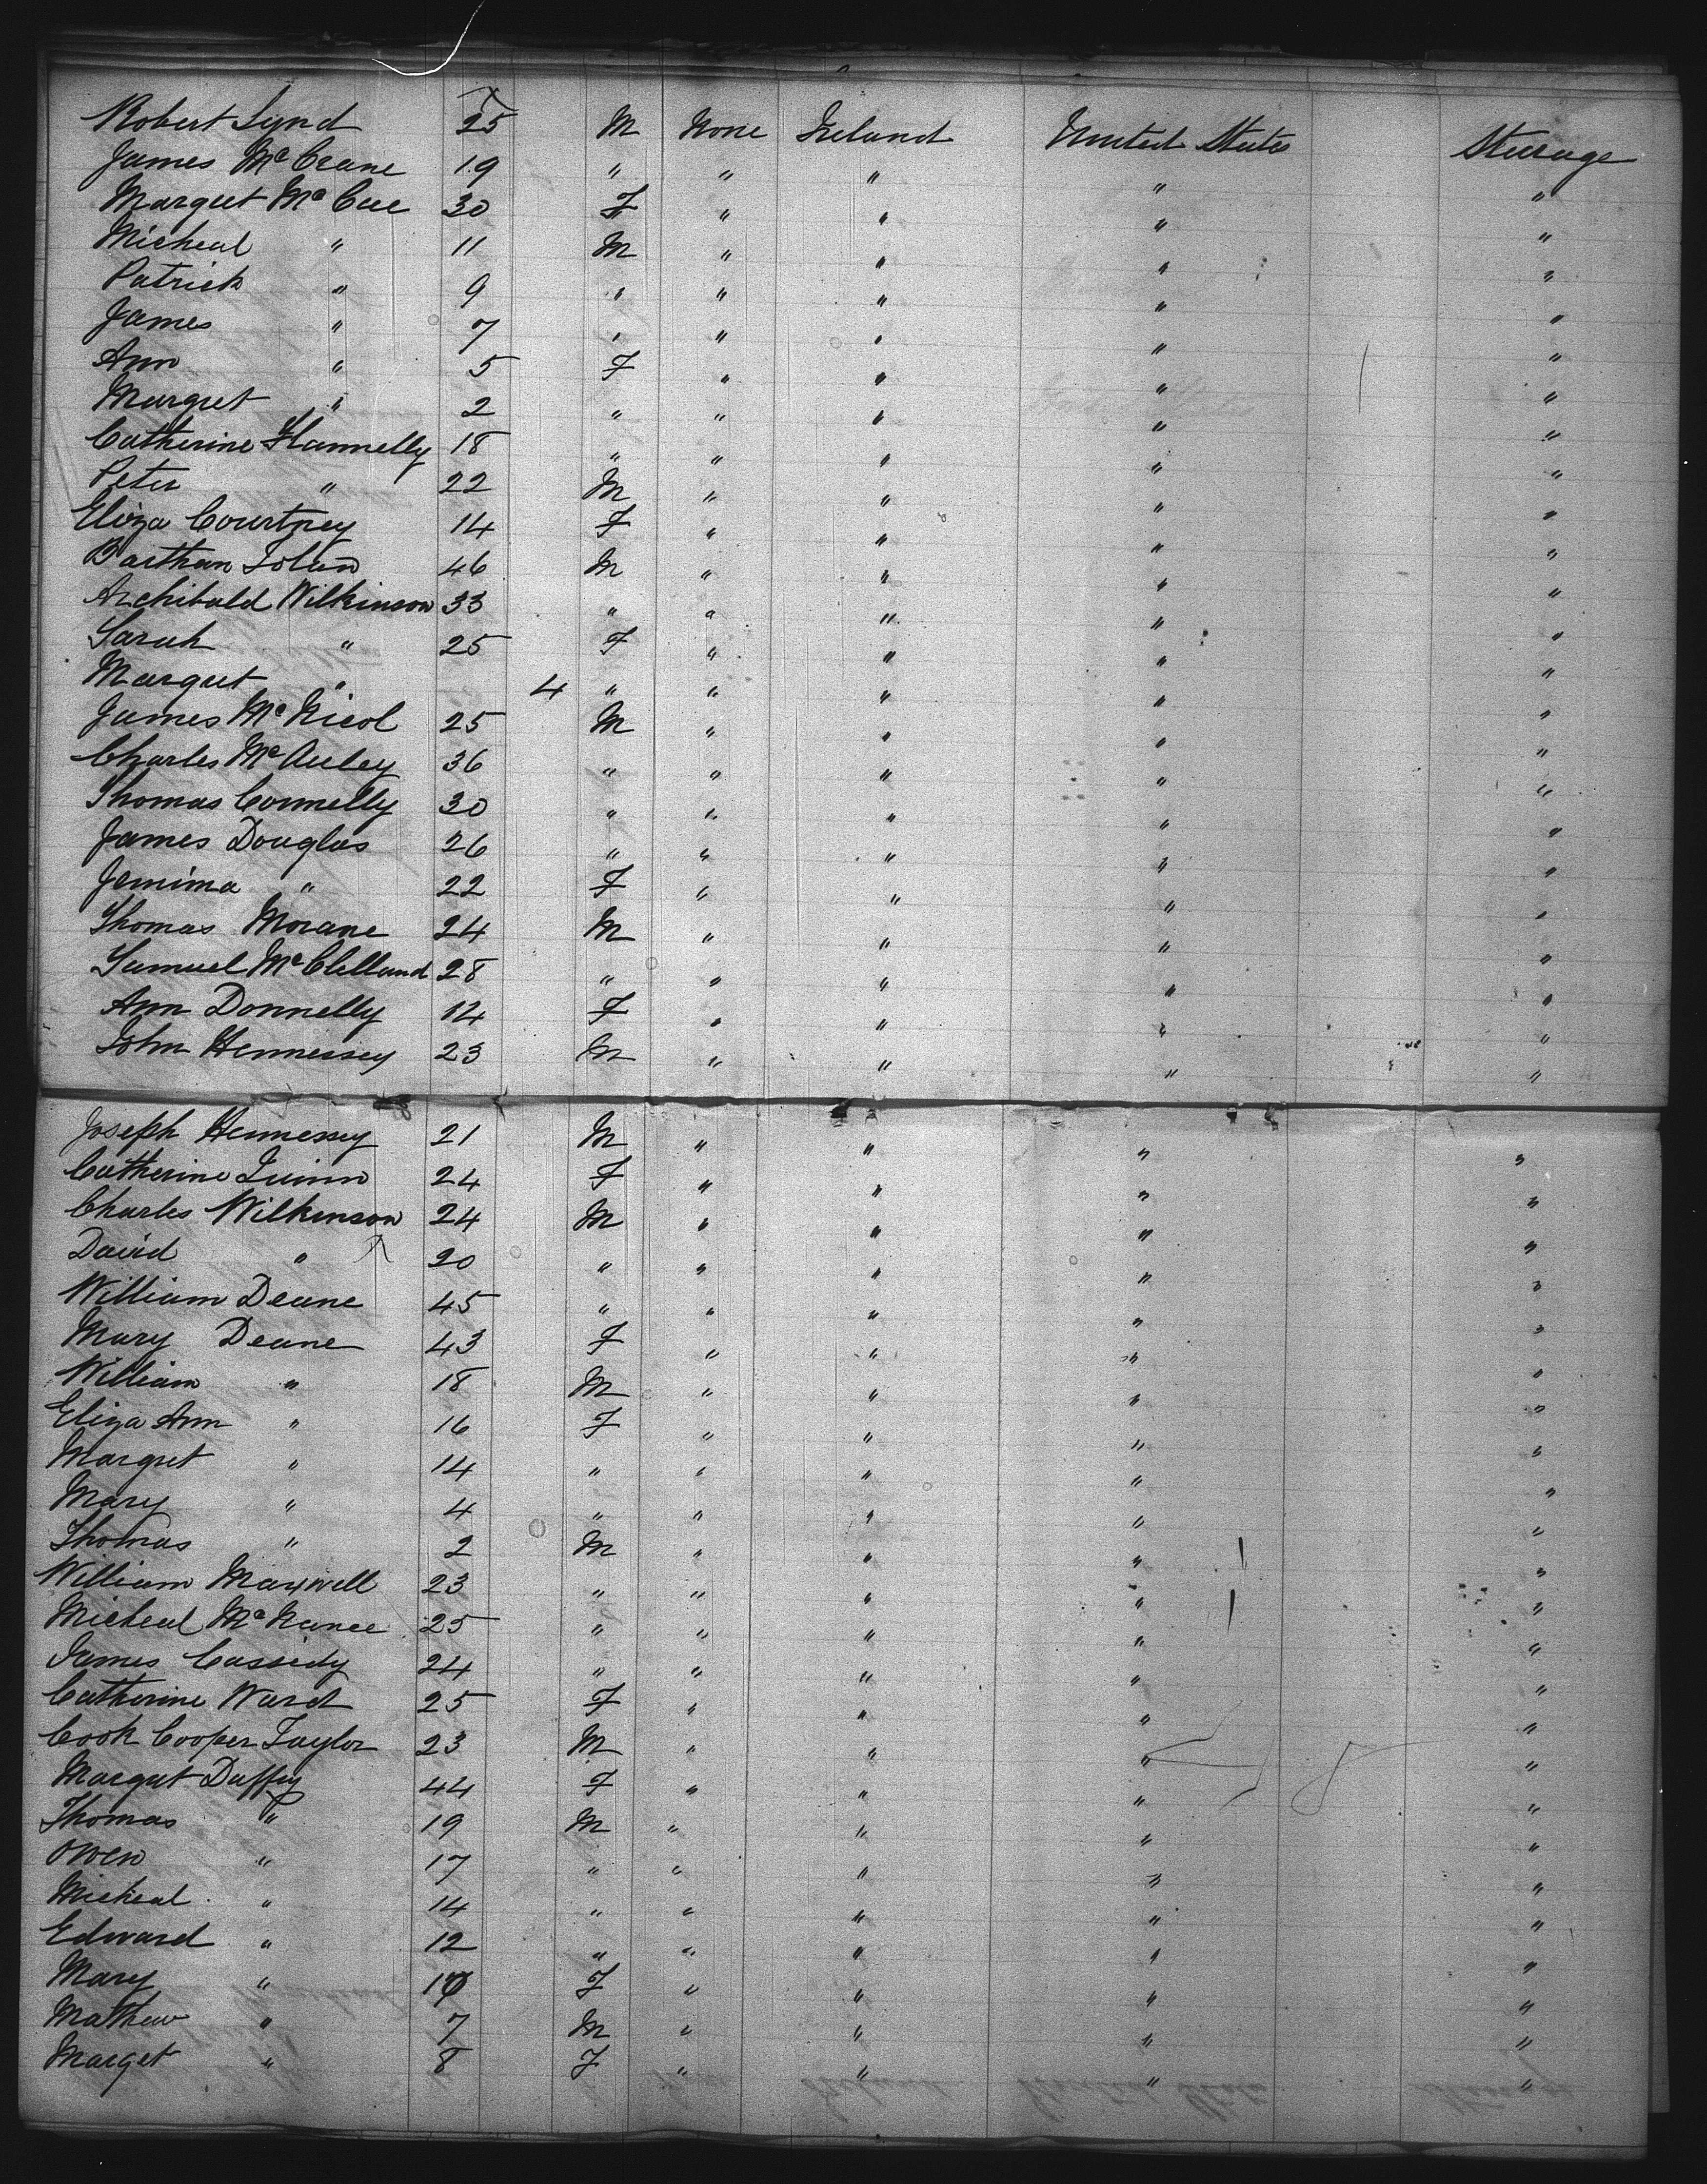 Robert Lynd 25 M None Ireland United States Steerage
James McCrane 19 " " " " "
Margret McCue 30 F " " " "
Micheal " 11 M " " " "
Patrick " 9 " " " " "
James " 7 " " " " "
Ann " 5 F " " " "
Margret " 2 " " " " "
Catherine Flannelly 18 " " " " "
Peter " 22 M " " " "
Eliza Courtney 14 F " " " "
Barthan 46 M " " " "
Archibald Wilkinson 33 " " " " "
Sarah " 25 F " " " "
Margret " 4 " " " " "
James McNicol 25 M " " " "
Charles McAuley 36 " " " " "
Thomas Connelly 30 " " " " "
James Douglas 26 " " " " "
Jemima " 22 F " " " "
Thomas Morane 24 M " " " "
Samuel McClelland 28 " " " " "
Ann Donnelly 12 F " " " "
John Hennessey 23 M " " " "
Joseph Hennessey 21 M " " " "
Catherine Quinn 24 F " " " "
Charles Wilkenson 24 M " " " "
David " 20 " " " " "
William Deane 45 " " " " "
Mary Deane 43 F " " " "
William " 18 M " " " "
Eliza Ann " 16 F " " " "
Margret " 14 " " " " "
Mary " 4 " " " " "
Thomas " 2 M " " " "
William Maxwell 23 " " " " "
Micheal McNanee 25 " " " " "
James Cassidy 24 " " " " "
Catherine Ward 25 F " " " "
Cook Cooper Taylor 23 M " " " "
Margret Duffy 44 F " " " "
Thomas " 19 M " " " "
Owen " 17 " " " " "
Micheal " 14 " " " " "
Edward " 12 " " " " "
Mary " F " " " "
Mathew " 7 M " " " "
Marget " 8 F " " " "